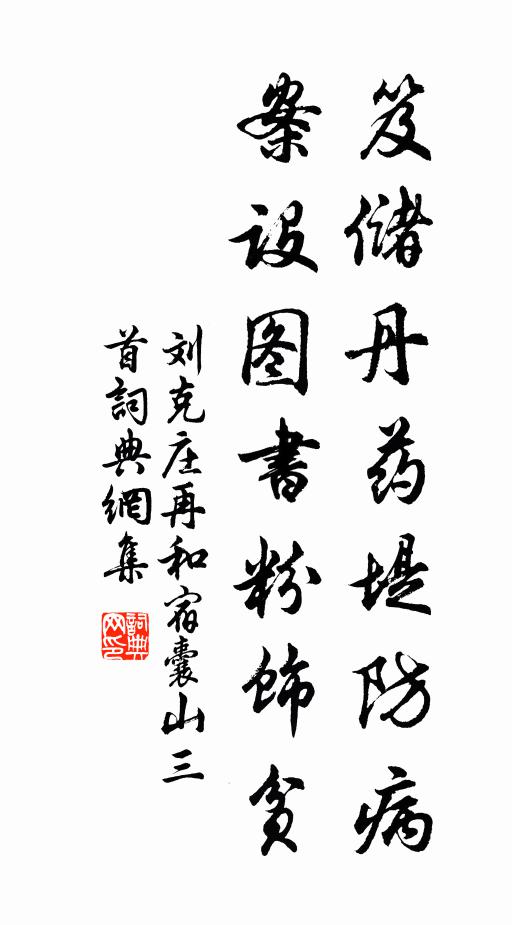 笈储丹药堤防病
案设图書粉饰贫
刘克庄再和宿囊山三
首詞典網集
詞典网印